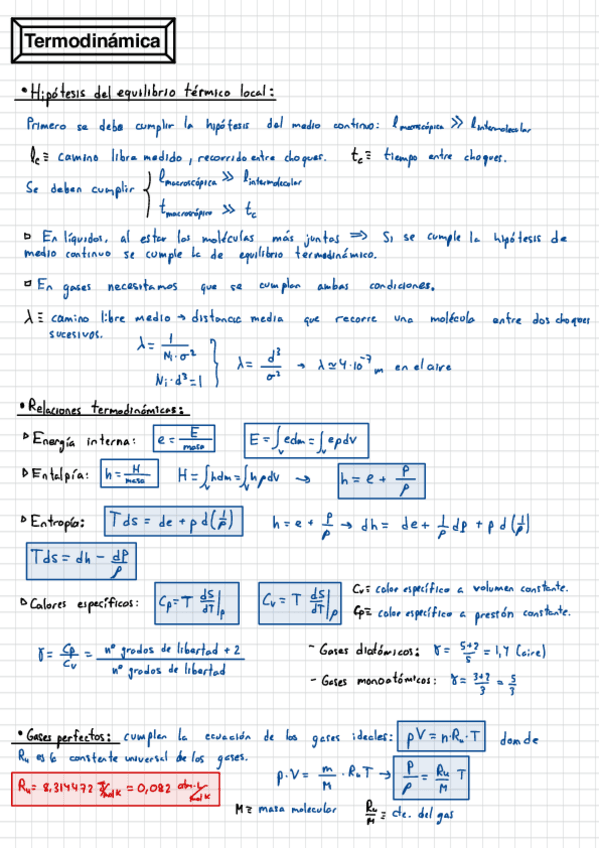 Termodinámica
• Hipótesis del equilibrio térmico local:
Primero se debe cumplir la hipótesis del medio continuo: l macroscópica >> l intermolecular
lc ≡ camino libre medido, recorrido entre choques. tc ≡ tiempo entre choques.
Se deben cumplir { l macroscópica >> l intermolecular
t macroscópico >> tc
▫ En líquidos, al estar las moléculas más juntas ⟹ Si se cumple la hipótesis de
medio continuo se cumple la de equilibrio termodinámico.
▫ En gases necesitamos que se cumplan ambas condiciones.
λ ≡ camino libre medio → distancia media que recorre una molécula entre dos choques
sucesivos.
λ = 1/(Ni·σ²)
Ni·d³ = 1 } λ = d³/σ² → λ ≃ 4·10⁻⁷ m en el aire
• Relaciones termodinámicas:
▹ Energía interna: e = E/masa E = ∫v e dm = ∫v e ρ dV
▹ Entalpía: h = H/masa H = ∫v h dm = ∫v h ρ dV → h = e + P/ρ
▹ Entropía: T ds = de + p d(1/ρ) h = e + P/ρ → dh = de + 1/ρ dp + p d(1/ρ)
T ds = dh - dP/ρ
▹ Calores específicos: Cp = T dS/dT|p Cv = T dS/dT|ρ Cv ≡ calor específico a volumen constante.
Cp ≡ calor específico a presión constante.
γ = Cp/Cv = (nº grados de libertad + 2)/(nº grados de libertad)
- Gases diatómicos: γ = (5+2)/5 = 1,4 (aire)
- Gases monoatómicos: γ = (3+2)/3 = 5/3
• Gases perfectos: cumplen la ecuación de los gases ideales: pV = n·Ru·T donde
Ru es la constante universal de los gases.
p·V = m/M · Ru T → P/ρ = Ru/M T
Ru = 8,314472 J/mol K = 0,082 atm·L/mol K
M ≡ masa molecular Ru/M ≡ cte. del gas